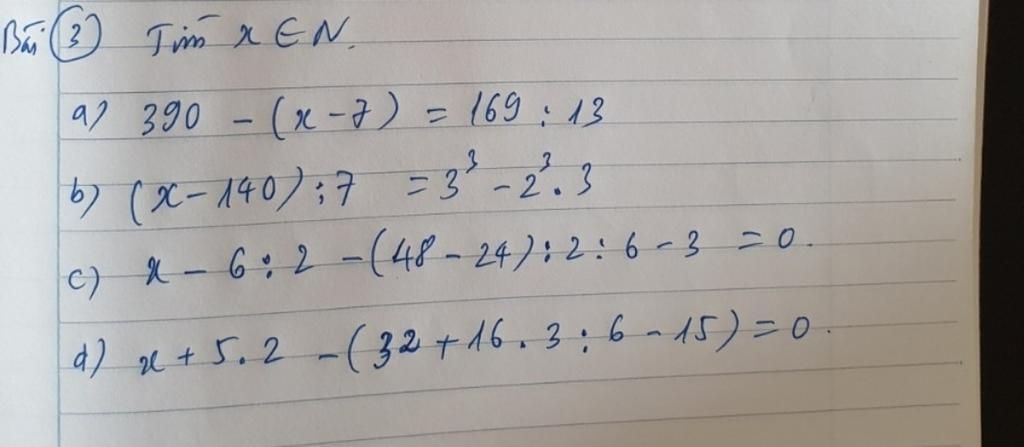 Bài 3 Tìm x ∈ N.
a) 390 - (x - 7) = 169 : 13
b) (x - 140) : 7 = 3³ - 2³. 3
c) x - 6 : 2 - (48 - 24) : 2 : 6 - 3 = 0.
d) x + 5. 2 - (32 + 16. 3 : 6 - 15) = 0.